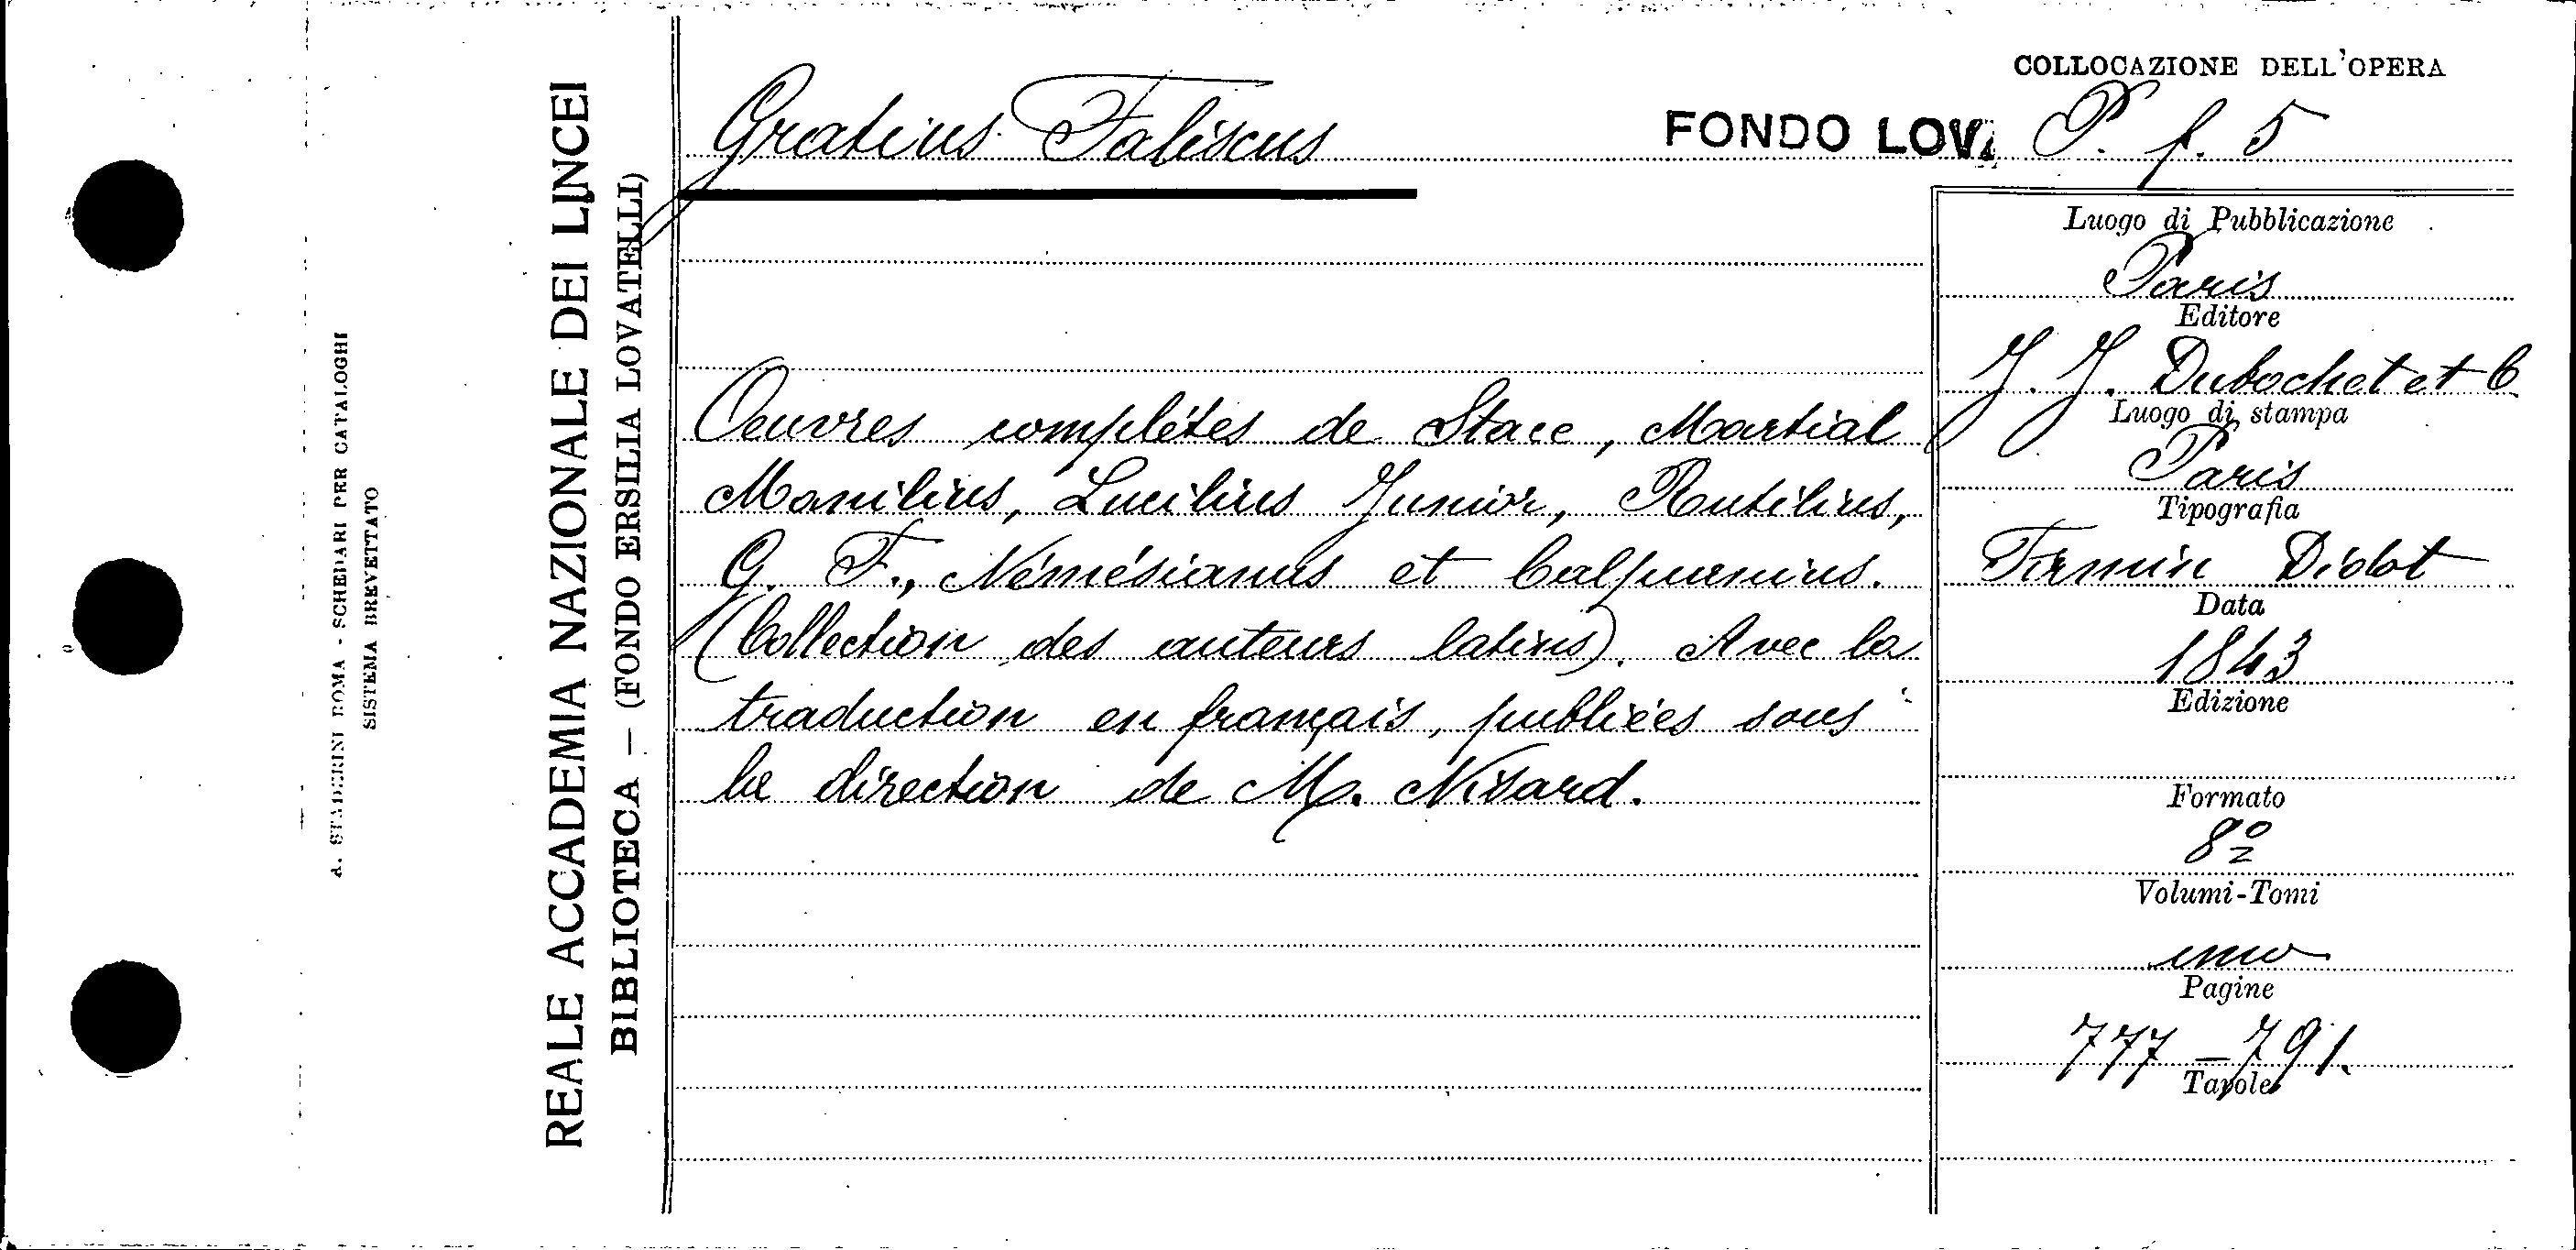 COLLOCAZIONE DELL'OPERA
Gratius Faliscus
FONDO LOV
P. f. 5
Oeuvres complétes de Stace, Martial
Manilius, Lucilius Junior, Rutilius,
G. F., Némésianus et Calpurnius.
(Collection des auteurs latins). Avec la
traduction en français, publiées sous
la direction de M. Nisard.
Luogo di Pubblicazione
Paris
Editore
J. J. Dubochet et C
Luogo di stampa
Paris
Tipografia
Firmin Didot
Data
1843
Edizione
Formato
8º
Volumi-Tomi
uno
Pagine
777-791.
Tavole
REALE ACCADEMIA NAZIONALE DEI LINCEI
BIBLIOTECA — (FONDO ERSILIA LOVATELLI)
A. STADERINI ROMA - SCHEDARI PER CATALOGHI
SISTEMA BREVETTATO